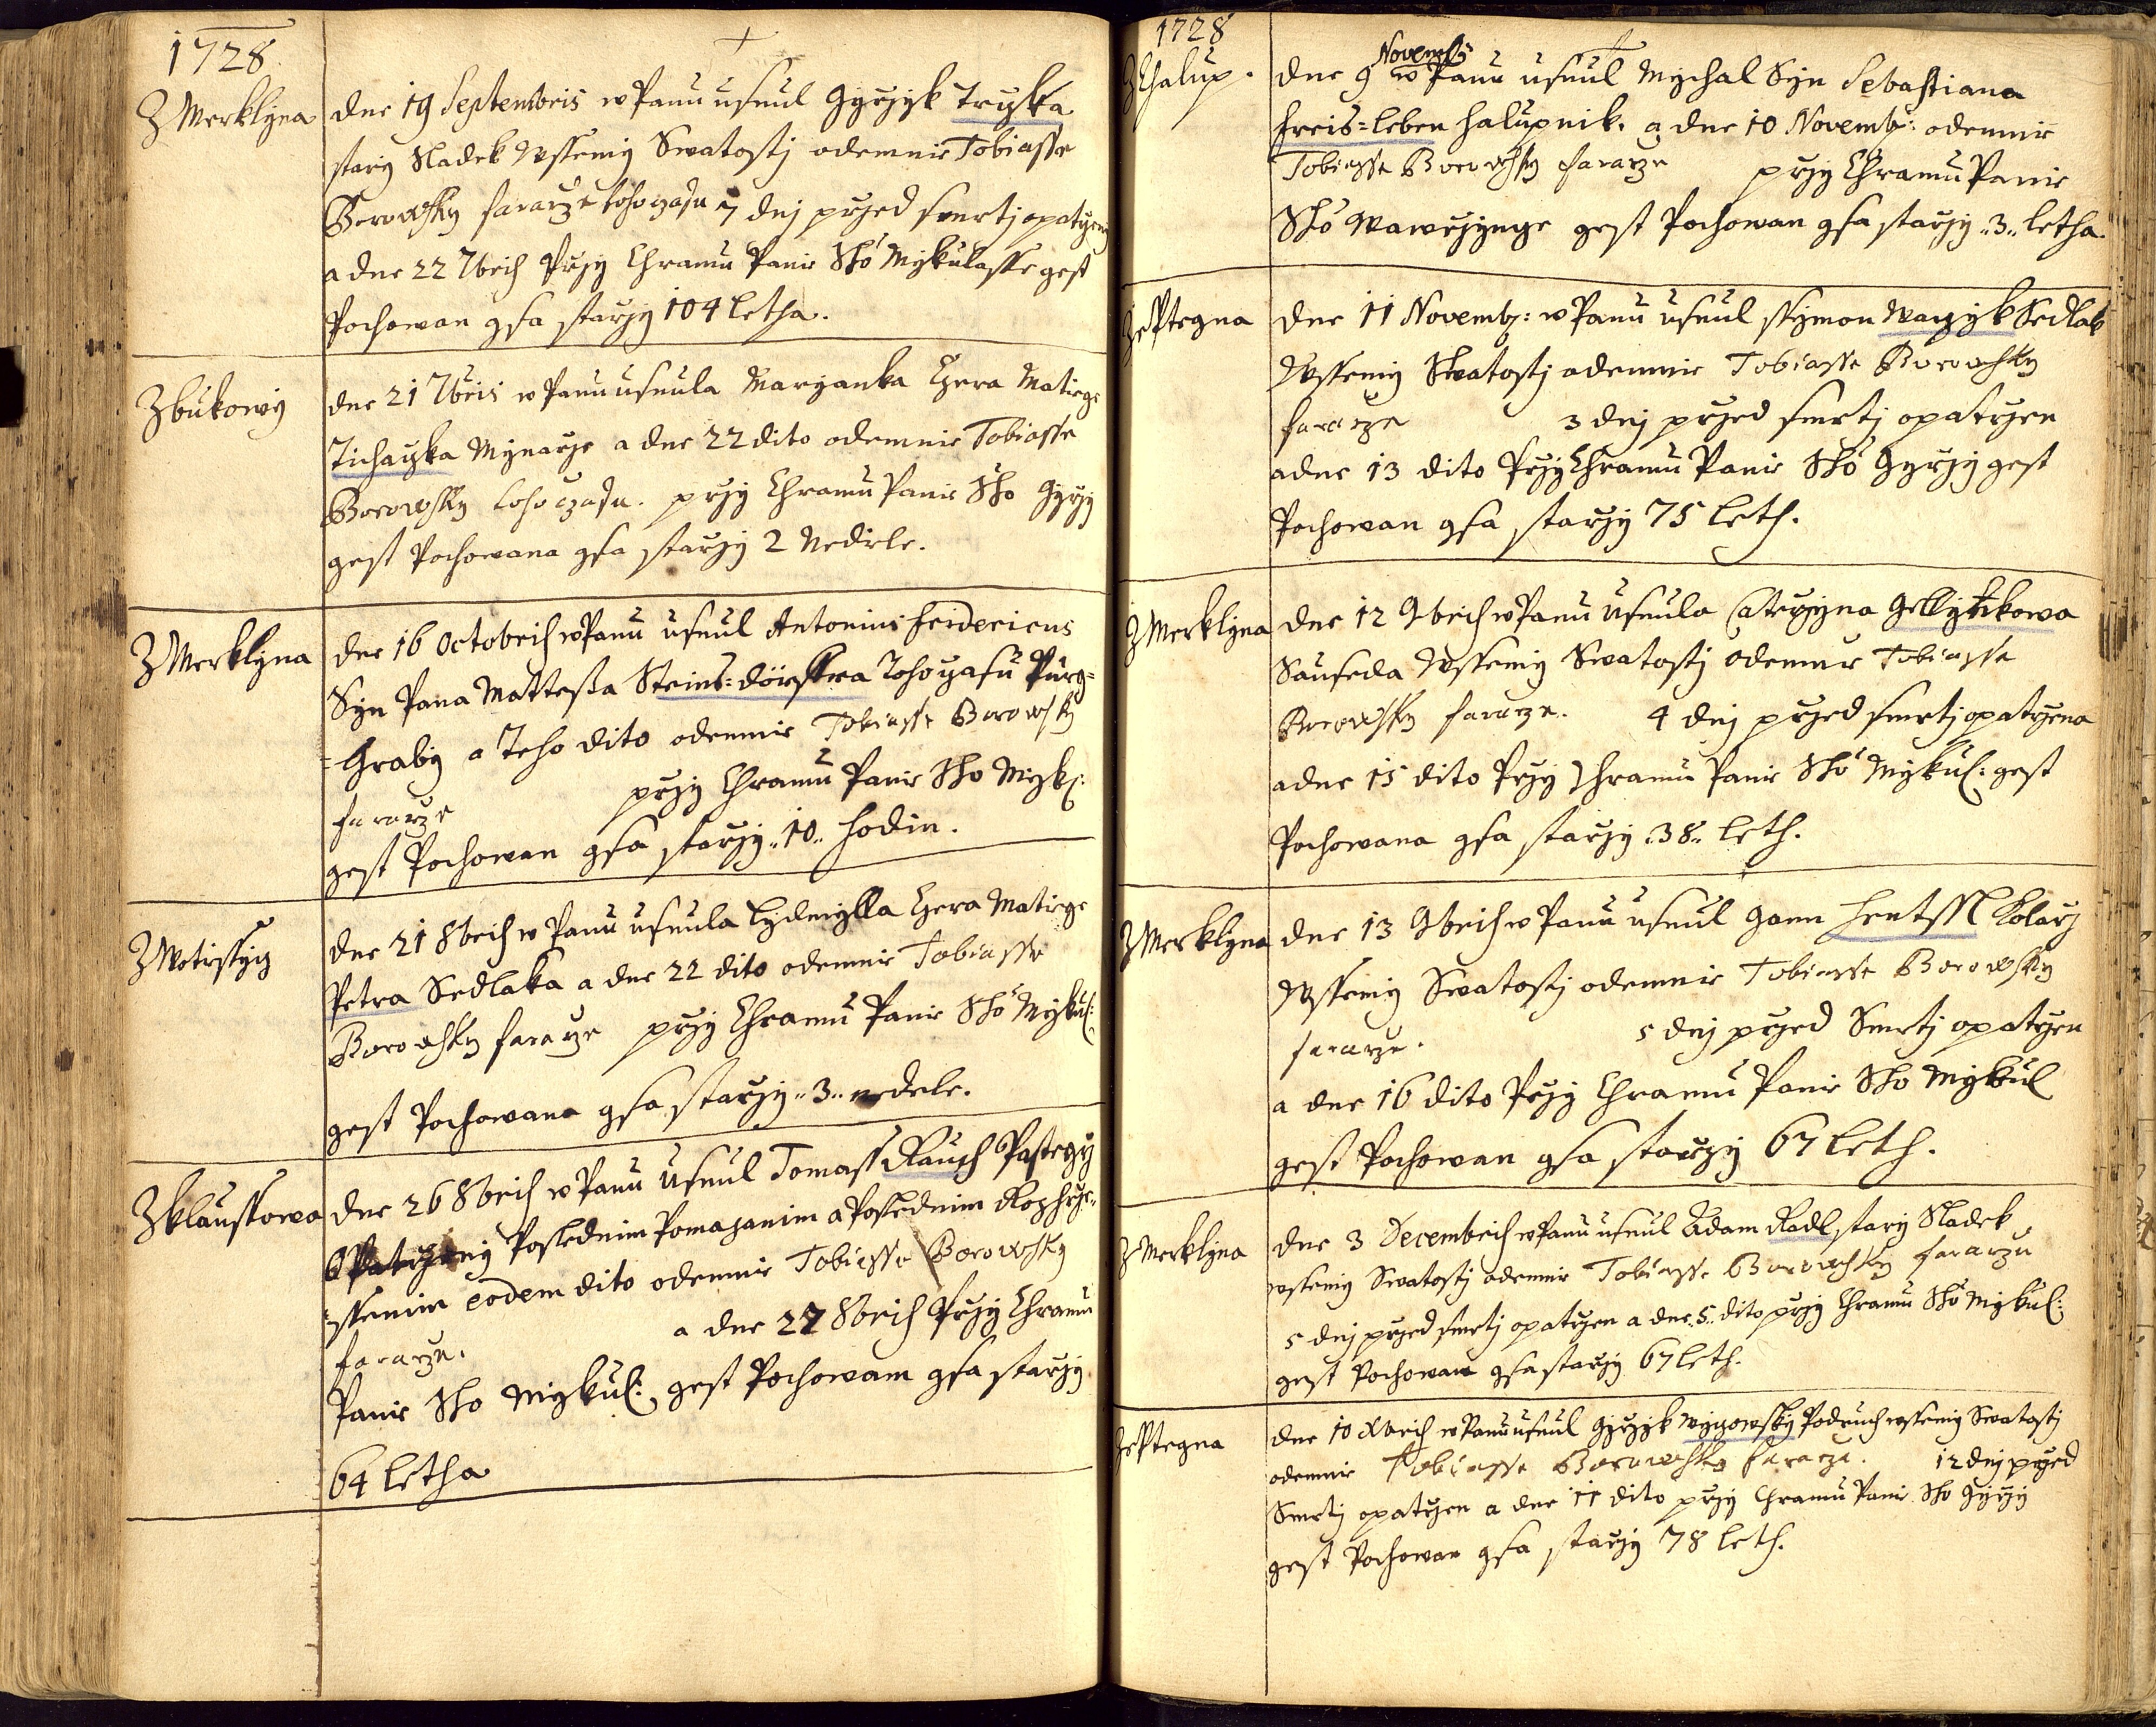 1728
Z Merklyna
dne 19 Septembris w Panu usnul Gyrzyk Tryska
stary Sladek Wssemy Swatostj odemnie Tobiasse
Borowsky fararze toho czasu 7 dnj przed smrtj opatrzeny
a dne 22 7bris Przy Chramu Panie Sho Mykulasse gest
Pochowan gsa starzy 104 letha.
Z bukowy
dne 21 7bris w Panu usnula Maryanka Czera Matiege
Tichaczka Mynarze a dne 22 dito odemnie Tobiasse
Borowsky toho czasu. przy Chramu Panie Sho Gyrzy
gest Pochowana gsa starzy 2 Nediele.
Z Merklyna
dne 16 Octobris w Panu usnul Antonius Fridericus
Syn Pana Mattesa Steins=dörffera Toho czasu Purg=
=Graby a Teho dito odemnie Tobiasse Borowsky
fararze przy Chramu Panie Sho Myk:
gest Pochowan gsa starzy „10„ hodin.
Z Wotiessycz
dne 21 8bris w Panu usnula Lydmylla Czera Matiege
Petra Sedlaka a dne 22 dito odemnie Tobiasse
Borowsky fararze przy Chramu Panie Sho Mykul:
gest Pochowana gsa starzy „3„ nedele.
Z klaussowa
dne 26 8bris w Panu Usnul Tomass Rauch
Opatrzeny Poslednim Pomazanim a Poslednim Rozhrze=
=ssenim eodem dito odemnie Tobiasse Borowsky
fararze. a dne 27 8bris Przy Chramu
Panie Sho Mykul: gest Pochowam gsa starzy
64 letha
1728
Z Chalup.
Novemb:
dne 9 w Panu usnul Mychal Syn Sebastiana
Freis=leben halupnik. a dne 10 Novemb: odemnie
Tobiasse Borowsky fararze przy Chramu Panie
Sho Wawrzynge gest Pochowan gsa starzy „3„ letha.
Ze Ptegna
dne 11 Novemb: w Panu usnul Ssymon Waczyk Sedlak
Wssemy Swatostj odemnie Tobiasse Borowsky
fararze 3 dnj przed smrtj opatrzen
a dne 13 dito Przy Chramu Panie Sho Gyrzy gest
Pochowan gsa starzy 75 leth.
Z Merklyna
dne 12 9bris w Panu Usnula Catrzyna Gellynkowa
Sauseda Wssemy Swatostj odemne Tobiasse
Borowsky fararze. 4 dnj przed smrtj opatrzena
a dne 15 dito Przy Chramu Panie Sho Mykul: gest
Pochowana gsa starzy „38„ leth.
Z Merklyna
dne 13 9bris w Panu usnul Gann Hentssl Kolarz
Wssemy Swatostj odemnie Tobiasse Borowsky
fararze. 5 dnj przed Smrtj opatrzen
a dne 16 dito Przy Chramu Panie Sho Mykul
gest Pochowan gsa starzy 67 leth.
Z Merklyna
dne 3 Decembris w Panu usnul Adam Radl stary Sladek
wssemy Swatostj odemnie Tobiasse Borowsky fararze
5 dnj przed smrtj opatrzen a dne „5„ dito przy Chramu Sho Mykul:
gest Pochowan gsa starzy 67 leth.
Ze Ptegna
dne 10 Xbris w Panu usnul Gyrzyk Wygowsky Podruh wssemy Swatostj
odemnie Tobiasse Borowsky fararze. 12 dnj przed
Smrtj opatrzen a dne 11 dito przy Chramu Panie Sho Gyrzy
gest Pochowan gsa starzy 78 leth.